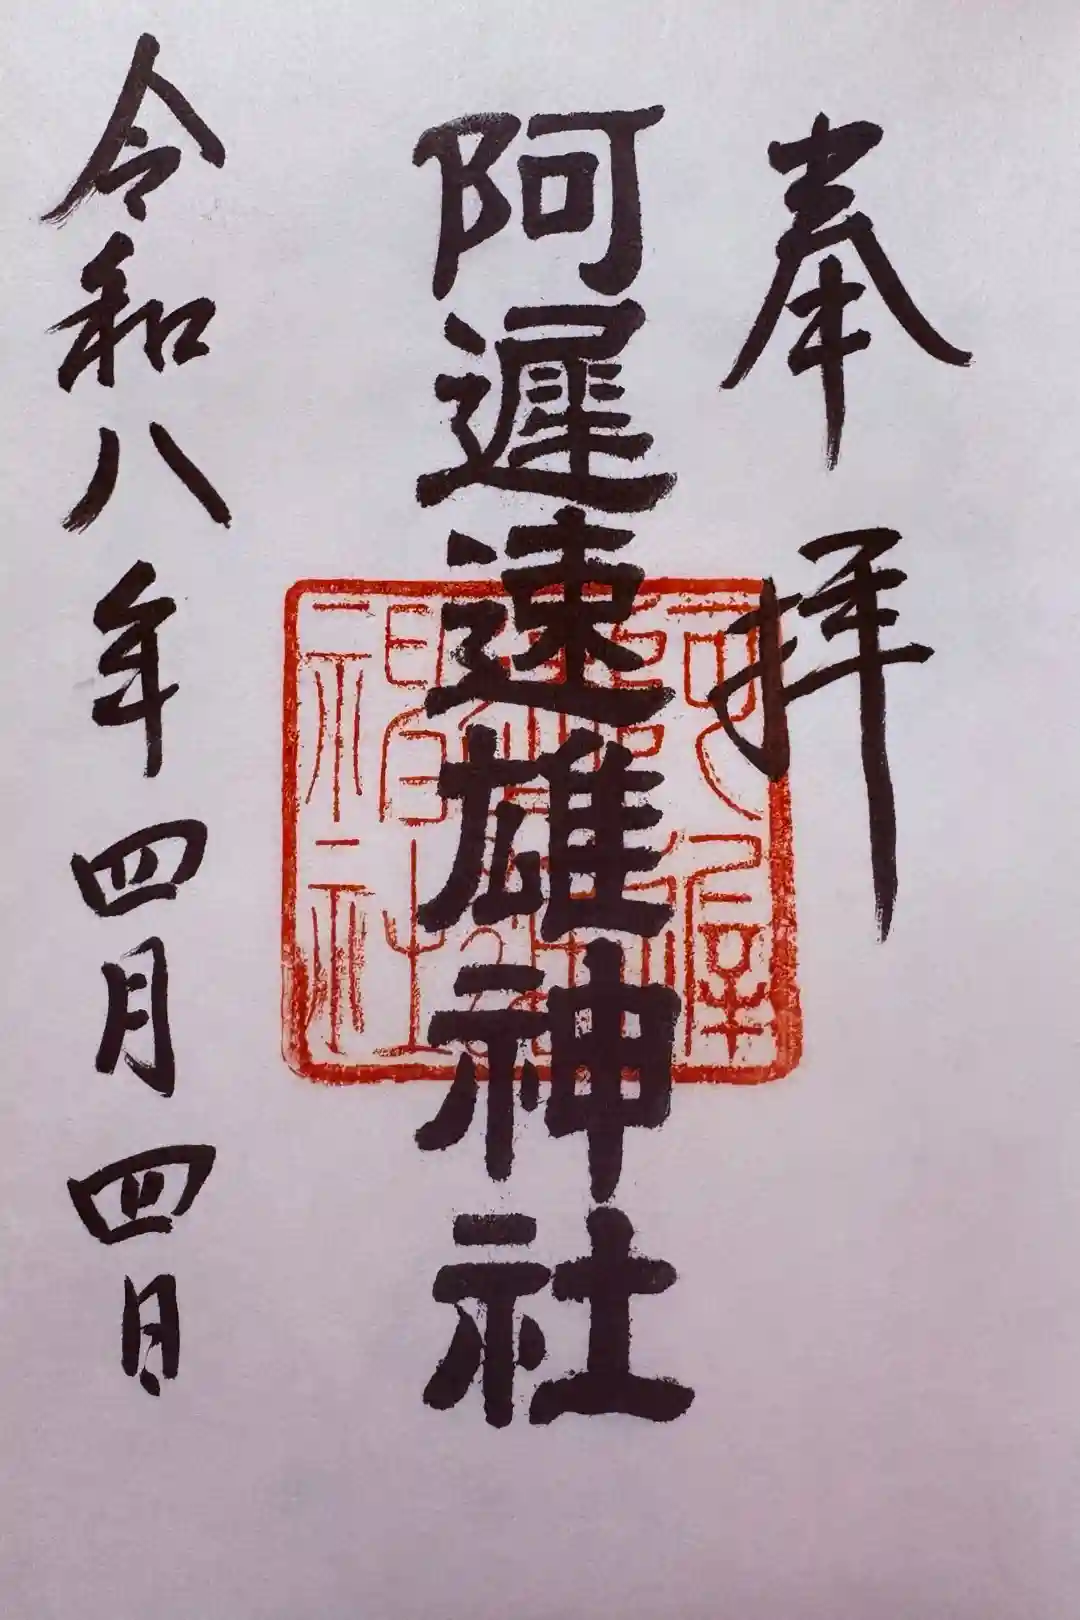 奉拝
阿遅速雄神社
令和八年四月四日